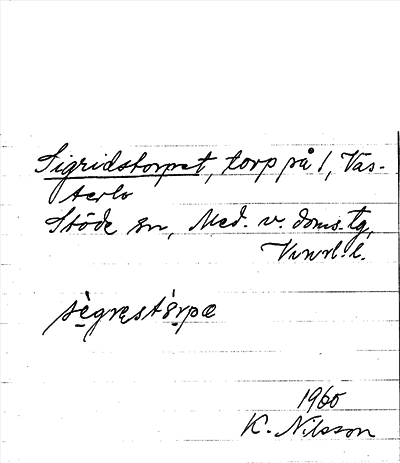 Sigridstorpet, torp på 1, Väs-
terlo
Stöde sn, Med. v. doms.tg,
Vnrl. l.
sègrest'ɷrpæ
1960
K. Nilsson